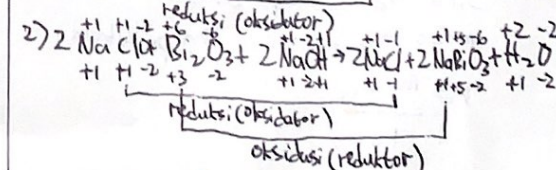 reduksi (oksidator)
+1 +1 -2 +6 -6 +1 -2 +1 +1 -1 +1 +5 -6 +2 -2
2) 2 NaClO + Bi2O3 + 2 NaOH → 2NaCl + 2 NaBiO3 + H2O
+1 +1 -2 +3 -2 +1 -2 +1 +1 -1 +1 +5 -2 +1 -2
reduksi (oksidator)
oksidasi (reduktor)